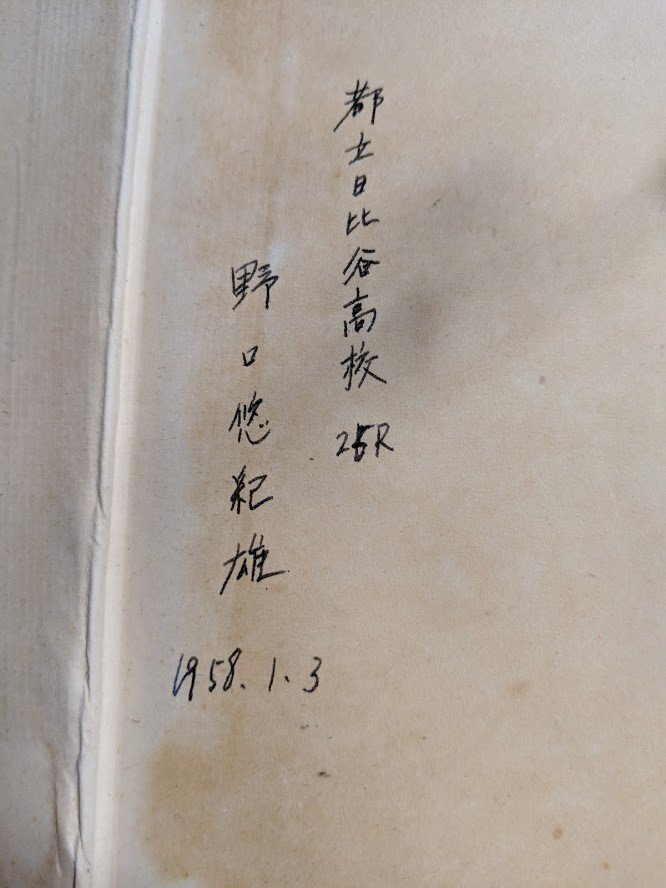 都立日比谷高校 25R
野口悠紀雄
1958.1.3